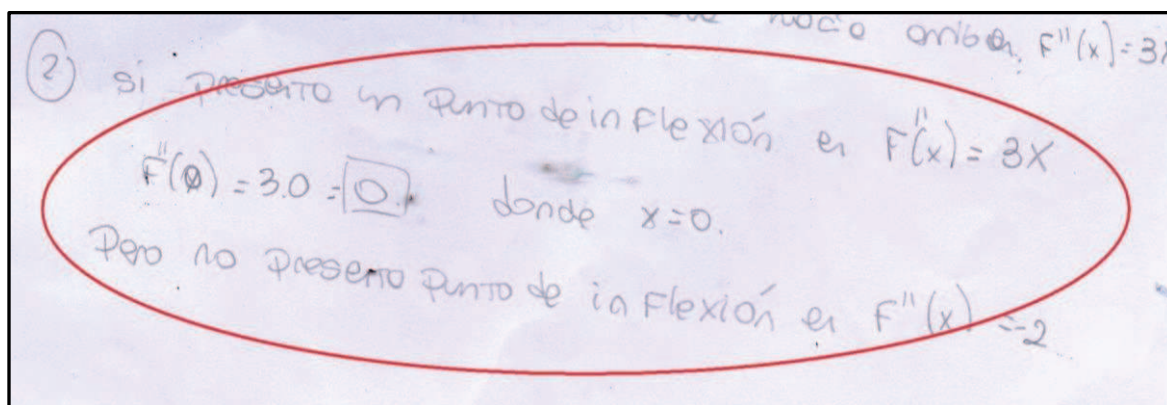 nacia arriba, F''(x)=3x
② si presenta un Punto de inflexión en F''(x) = 3X
F''(0) = 3.0 = 0. donde x=0.
Pero no presenta Punto de inflexión en F''(x) =-2